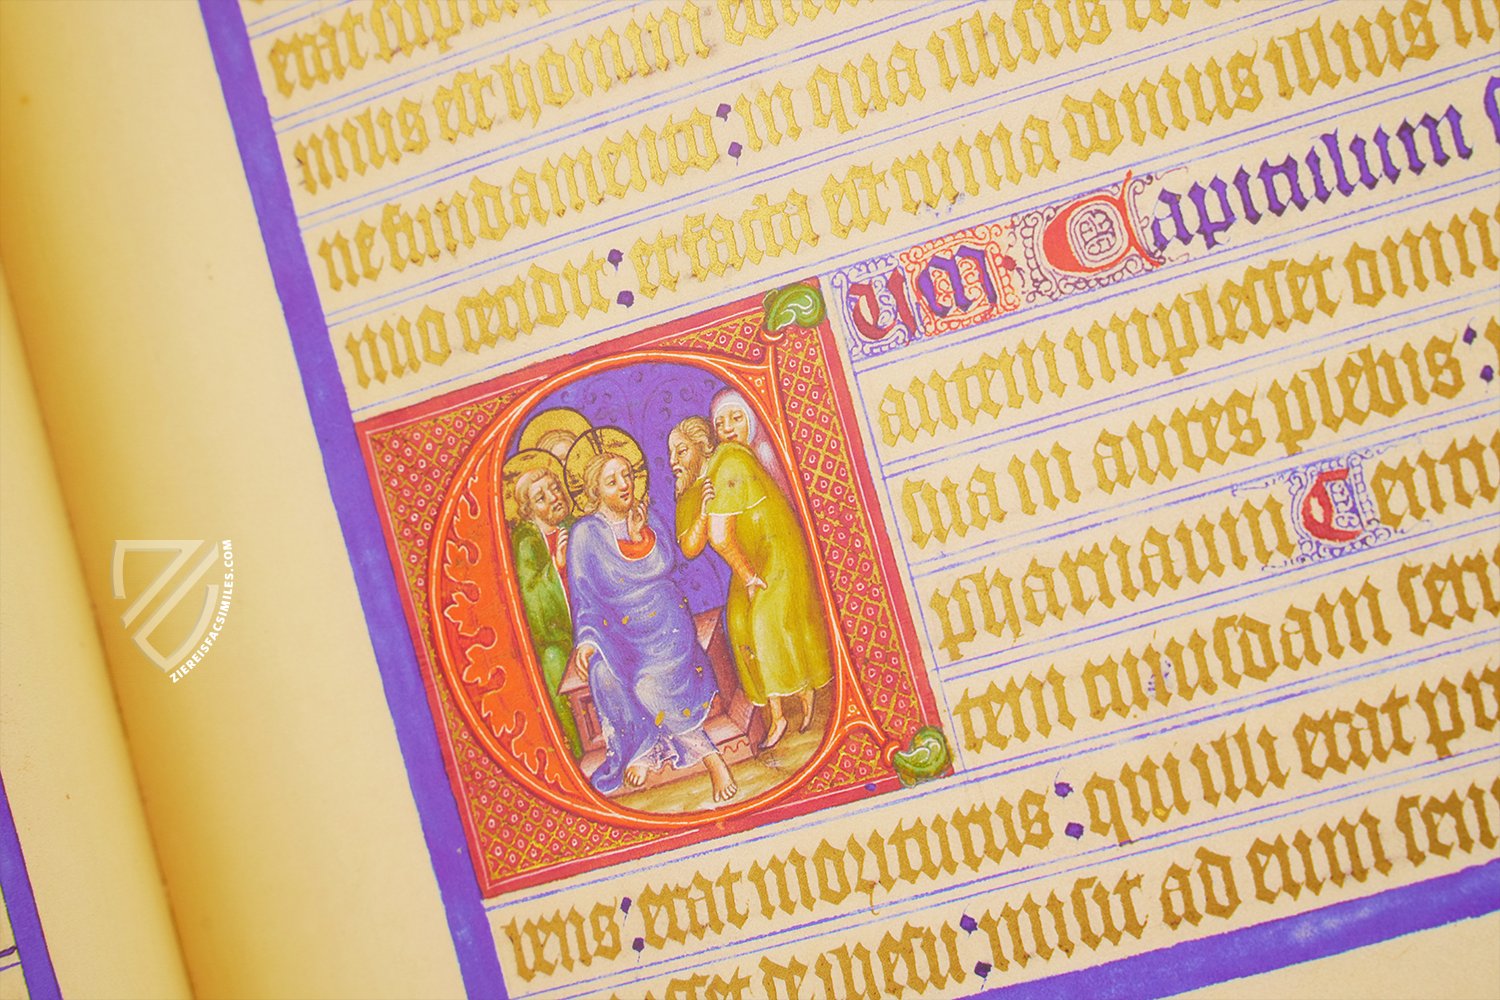 erat supra
milis est homini
ne fundamento : in qua illisus
nuo cecidit : et facta est ruina domus illius
um. Capitulum
autem implesset omn
sua in aures plebis :
pharnaum Centu
tem cuiusdam ser
bens : erat moriturus : qui illi erat pr
sset de ihesu : misit ad eum sen
ZIEREISFACSIMILES.COM